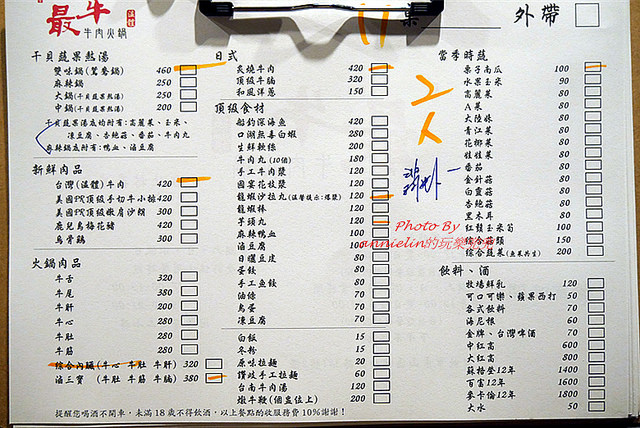 最牛
牛肉火鍋
溫體
外帶
干貝蔬果熱湯
雙味鍋(鴛鴦鍋) 460
麻辣鍋 250
大鍋(干貝蔬果熱湯) 250
中鍋(干貝蔬果熱湯) 200
干貝蔬果湯底附有:高麗菜、玉米、
凍豆腐、杏鮑菇、番茄、牛肉丸
麻辣鍋底附有:鴨血、油豆腐
新鮮肉品
台灣(溫體)牛肉 420
美國PR頂級手切牛小排 420
美國PR頂級嫩肩沙朗 300
鹿兒島梅花豬 420
烏骨雞 300
火鍋肉品
牛舌 320
牛尾 380
牛肝 200
牛心 280
牛肚 280
牛筋 280
綜合內臟(牛心 牛肚 牛肝) 320
滷三寶 (牛肚 牛筋 牛腩) 380
日式
炙燒牛肉 420
頂級牛腩 320
和風洋蔥 150
頂級食材
船釣深海魚 420
口湖無毒白蝦 280
生鮮軟絲 200
牛肉丸(10個) 180
手工牛肉漿 180
國宴花枝漿 180
龍蝦沙拉丸(溫馨提示:爆漿) 120
龍蝦棒 120
芋頭丸 120
麻辣鴨血 100
油豆腐 100
日曬豆皮 80
蛋餃 80
手工魚餃 80
油條 70
鳥蛋 70
凍豆腐 70
白飯 15
冬粉 15
原味拉麵 20
讚岐手工拉麵 60
台南牛肉湯 120
燉牛鞭(個盅位上) 200
當季時蔬
栗子南瓜 100
水果玉米 90
高麗菜 80
A菜 80
大陸妹 80
青江菜 80
花椰菜 80
娃娃菜 80
番茄 80
金針菇 80
白靈菇 80
杏鮑菇 80
黑木耳 80
紅鬚玉米筍 100
綜合菇類 150
綜合蔬菜(魚菜共生) 200
飲料、酒
牧場鮮乳 120
可口可樂、蘋果西打 50
各式飲料 70
海尼根 60
金牌、台灣啤酒 70
中紅高 600
大紅高 800
蘇格登12年 1400
百富12年 1600
麥卡倫12年 1800
大水 50
2人
Photo By
annielin的玩樂
提醒您喝酒不開車,未滿18歲不得飲酒,以上餐點酌收服務費10%謝謝!